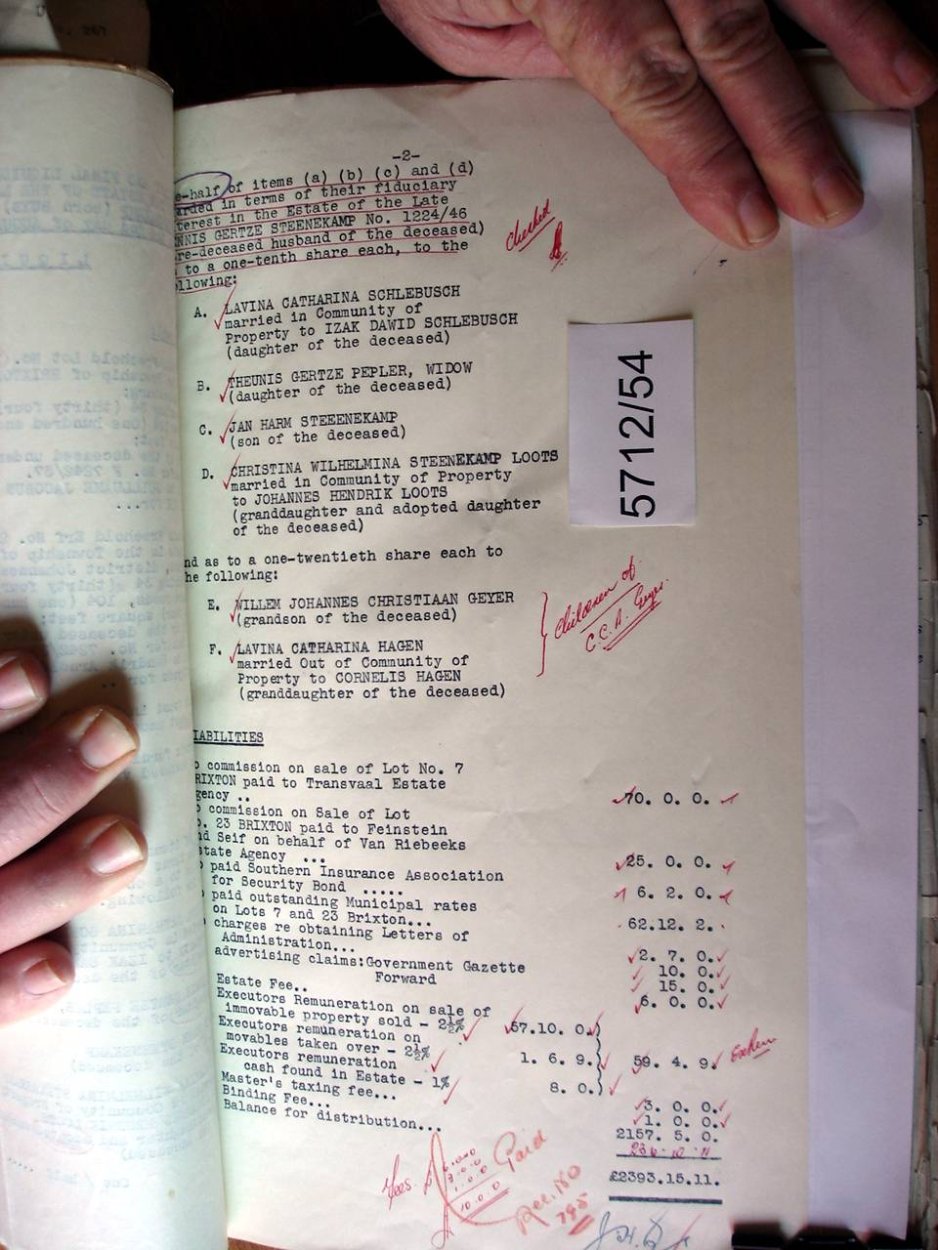 -2-
e-half of items (a) (b) (c) and (d)
arded in terms of their fiduciary
terest in the Estate of the Late
NNIS GERTZE STEENEKAMP No. 1224/46
re-deceased husband of the deceased)
to a one-tenth share each, to the
llowing:
checked
A. LAVINA CATHARINA SCHLEBUSCH
married in Community of
Property to IZAK DAWID SCHLEBUSCH
(daughter of the deceased)
B. THEUNIS GERTZE PEPLER, WIDOW
(daughter of the deceased)
C. JAN HARM STEEENEKAMP
(son of the deceased)
D. CHRISTINA WILHELMINA STEENEKAMP LOOTS
married in Community of Property
to JOHANNES HENDRIK LOOTS
(granddaughter and adopted daughter
of the deceased)
5712/54
nd as to a one-twentieth share each to
he following:
E. WILLEM JOHANNES CHRISTIAAN GEYER
(grandson of the deceased)
F. LAVINA CATHARINA HAGEN
married Out of Community of
Property to CORNELIS HAGEN
(granddaughter of the deceased)
Children of
C.C.A. Geyer
IABILITIES
commission on sale of Lot No. 7
RIXTON paid to Transvaal Estate
gency .. 70. 0. 0.
commission on Sale of Lot
o. 23 BRIXTON paid to Feinstein
nd Seif on behalf of Van Riebeeks
state Agency ... 25. 0. 0.
paid Southern Insurance Association
for Security Bond ..... 6. 2. 0.
paid outstanding Municipal rates
on Lots 7 and 23 Brixton... 62.12. 2.
charges re obtaining Letters of
Administration... 2. 7. 0.
advertising claims:Government Gazette 10. 0.
Forward 15. 0.
Estate Fee.. 6. 0. 0.
Executors Remuneration on sale of
immovable property sold - 2½% 57.10. 0.
Executors remuneration on
movables taken over - 2½% 1. 6. 9. 59. 4. 9.
Executors remuneration
cash found in Estate - 1% 8. 0.
Master's taxing fee... 3. 0. 0.
Binding Fee... 1. 0. 0.
Balance for distribution... 2157. 5. 0.
236 10 11
£2393.15.11.
Fees
6.0.0
3.0.0
1.0.0
10.0.0
Paid
Rec. 180